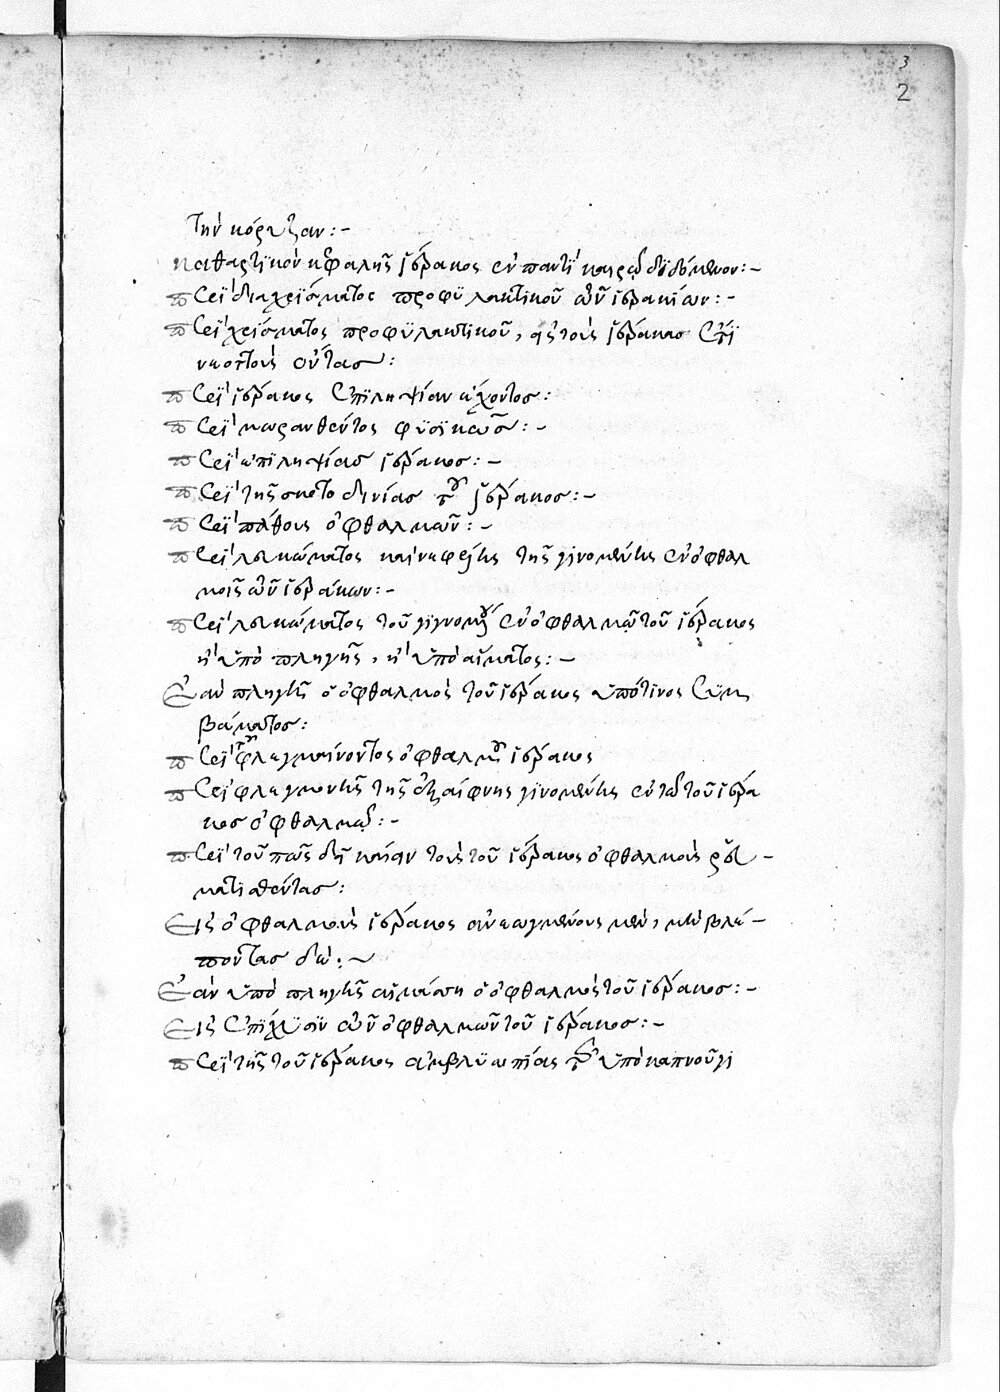 3
2
τὴν κόρυζαν:-
καθαρτικὸν κεφαλῆς ἱέρακος ἐν παντὶ καιρῷ διδόμενον:-
περὶ διαχρίσματος προφυλακτικοῦ τῶν ἱεράκων:-
περὶ χρίσματος προφυλακτικοῦ, εἰς τοὺς ἱέρακας ἔτι
νεοττοὺς ὄντας:
περὶ ἱέρακος ἐπιληψίαν ἔχοντος:
περὶ μωρανθέντος φυσικῶς:-
περὶ ἐπιληψίας ἱέρακος:-
περὶ τῆς σκοτοδινίας τοῦ ἱέρακος:-
περὶ πάθους ὀφθαλμῶν:-
περὶ λευκώματος καὶ νεφέλης τῆς γινομένης ἐν ὀφθαλ
μοῖς τῶν ἱεράκων:-
περὶ λευκώματος τοῦ γιγνομένου ἐν ὀφθαλμῷ τοῦ ἱέρακος
ἢ ὑπὸ πληγῆς, ἢ ὑπὸ αἵματος:-
Ἐὰν πληγῇ ὁ ὀφθαλμὸς τοῦ ἱέρακος ὑπό τινος συμ
βάματος:
περὶ φλεγμαίνοντος ὀφθαλμοῦ ἱέρακος
περὶ φλεγμονῆς τῆς ἐξαίφνης γινομένης ἐν τῷ τοῦ ἱέρα
κος ὀφθαλμῷ:-
περὶ τοῦ πῶς δεῖ καίειν τοὺς τοῦ ἱέρακος ὀφθαλμοὺς ῥευ-
ματισθέντας:
Εἰς ὀφθαλμοὺς ἱέρακος ἀνεωγμένους μὲν, μὴ βλέ-
ποντας δέ:~
Ἐὰν ὑπὸ πληγῆς αἱμάσῃ ὁ ὀφθαλμὸς τοῦ ἱέρακος:-
Εἰς ἐπίχυσιν τῶν ὀφθαλμῶν τοῦ ἱέρακος:-
περὶ τῆς τοῦ ἱέρακος ἀμβλυωπίας τῆς ὑπὸ καπνοῦ γι